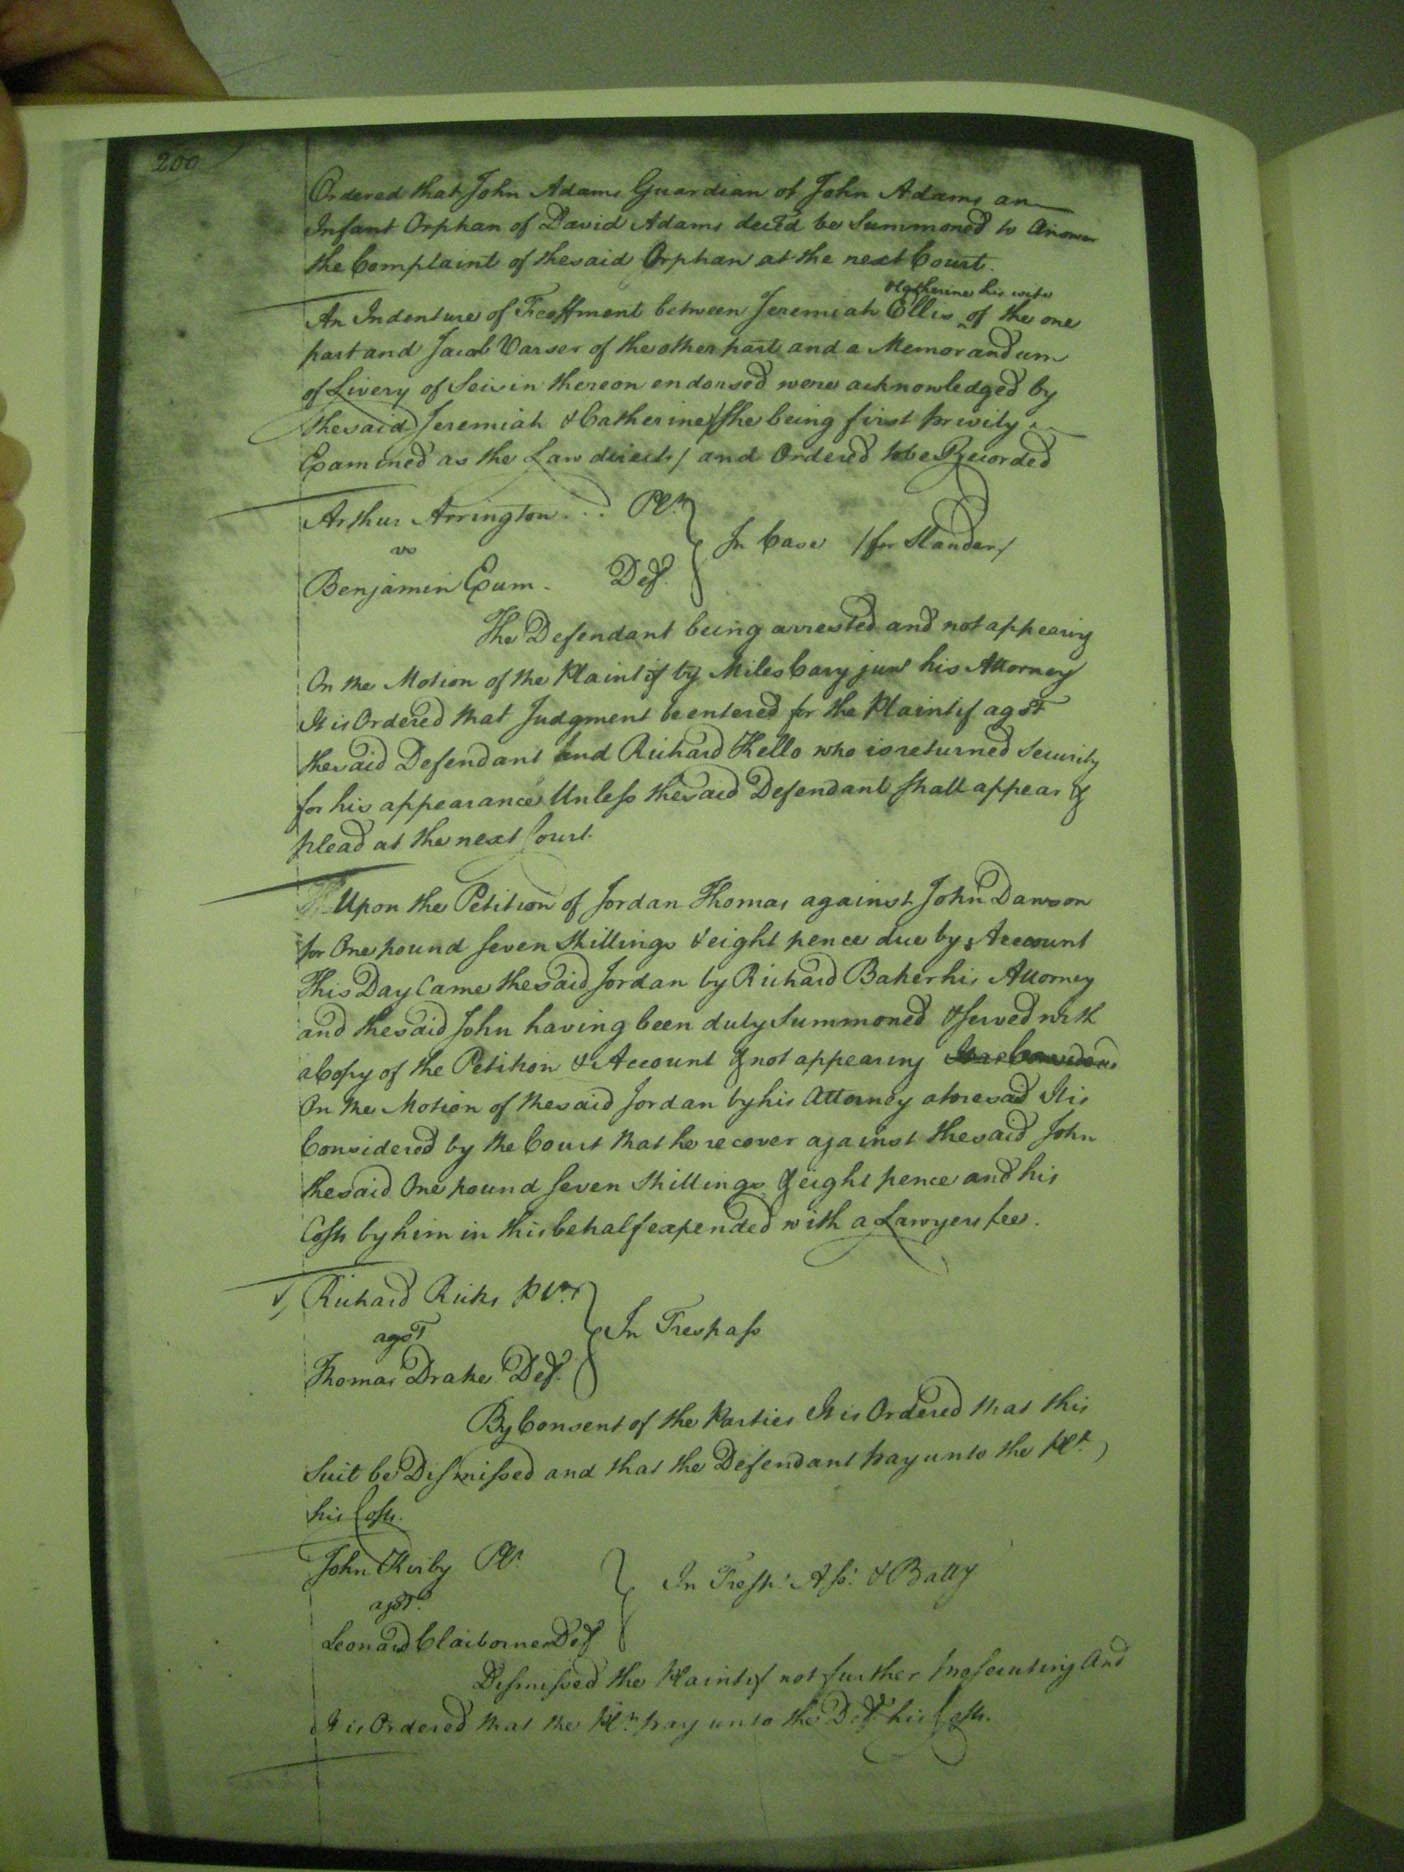 200
Ordered that John Adams Guardian of John Adams an
Infant Orphan of David Adams dec'd be Summoned to Answer
the Complaint of the said Orphan at the next Court.
& Catherine his wife
An Indenture of Feoffment between Jeremiah Ellis ^ of the one
part and Jacob Varser of the other part and a Memorandum
of Livery of Seisin thereon endorsed were acknowledged by
the said Jeremiah & Catherine /she being first privily
Examined as the Law directs/ and Ordered to be Recorded
Arthur Arrington . . . Plt.
vs
In Case /for Slander/
Benjamin Exum. Def.
The Defendant being arrested and not appearing
On the Motion of the Plaintif by Miles Cary junr his Attorney
It is Ordered that Judgment be entered for the Plaintif agst
the said Defendant and Richard Kello who is returned Security
for his appearance Unless the said Defendant shall appear &
plead at the next Court.
Upon the Petition of Jordan Thomas against John Dawson
for One pound seven Shillings & eight pence due by Account
This Day Came the said Jordan by Richard Baker his Attorney
and the said John having been duly Summoned & served with
a Copy of the Petition & Account & not appearing
On the Motion of the said Jordan by his Attorney aforesaid It is
Considered by the Court that he recover against the said John
the said One pound seven Shillings & eight pence and his
Costs by him in this behalf expended with a Lawyers fee.
Richard Ricks Plt.
agst
In Trespass
Thomas Drake Def.
By Consent of the Parties It is Ordered that this
Suit be Dismissed and that the Defendant pay unto the Plt.
his Costs.
John Kirby Plt.
agst.
In Tresps. Ass. & Batty
Leonard Claiborne Def
Dismissed the Plaintif not further prosecuting And
It is Ordered that the Plt. pay unto the Deft. his Costs.